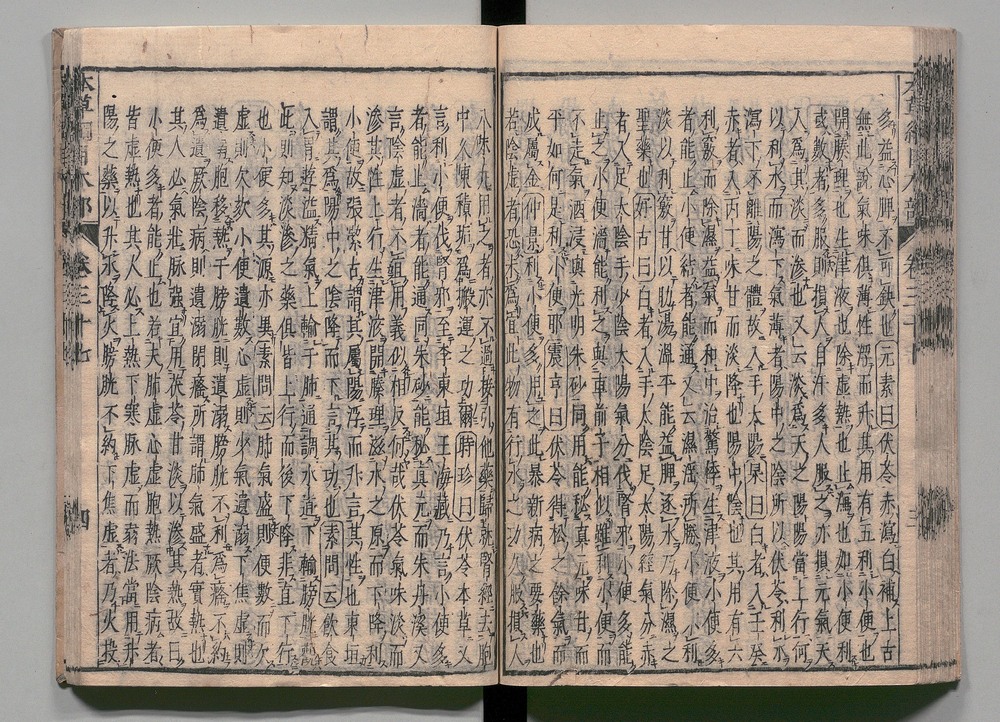 多益心脾不可缺也元素曰伏苓赤瀉白補上古
無此說氣味俱薄性浮而升其用有五利小便也
開腠理也生津液也除虚熱也止瀉也如小便利
或數者多服則損人目汗多人服之亦損元氣夭
人爲其淡而滲也又云淡爲天之陰陽當上行何
以利水而瀉下氣薄者陽中之陰所以伏苓利水
瀉下不離陽之體故入手太陽杲曰白者入壬癸
赤者入丙丁味甘而淡降也陽中陰也其用有六
利竅而除濕益氣而和中治驚悸生津液小便多
者能止小便結者能通又云濕淫所勝小便不利
淡以利竅甘以助陽溫平能益脾逐水乃除濕之
聖藥也好古曰白者入手太陰足太陽經氣分赤
者入足太陰手少陰太陽氣分伐腎邪小便多能
止之小便澀能利之與車前子相似雖利小便而
不走氣酒浸與光明朱砂同用能秘真元味甘而
平如何是利小便耶震亨曰伏苓得松之餘氣而
成屬金仲景利小便多用之此暴新病之要藥也
若陰虛者恐未爲宜此物有行水之功久服損人
八味丸用之者亦不過接引他藥歸就腎經去胞
中久陳積垢爲搬運之功爾時珍曰伏苓本草又
言利小便伐腎邪至李東垣王海藏乃言小便多
者能止澀者能通同朱砂能秘真元而朱丹溪又
言陰虛者不宜用義似相反何哉伏苓氣味淡而
滲其性上行生津液開腠理滋水之原而下降利
小便故張潔古謂其屬陽浮而升言其性也東垣
謂其爲陽中之陰降而下言其功也素問云飲食
入胃遊溢精氣上輸于肺通調水道下輸膀胱觀
此則知淡滲之藥俱皆上行而後下降非直下行
也小便多其源亦異素問云肺氣盛則便數而欠
虛則欠欬小便遺數心虛則少氣遺溺下焦虛則
遺溺胞移熱于膀胱則遺溺膀胱不利爲癃不約
爲遺厥陰病則遺溺閉癃所謂肺氣盛者實熱也
其人必氣壯脉強宜用茯苓甘淡以滲其熱故曰
小便多者能止也若夫肺虛心虛胞熱厥陰病者
皆虛熱也其人必上熱下寒脉虛而弱法當用升
陽之藥以升水降火膀胱不約下焦虛者乃火投
本草綱目木部
卷三十七
四